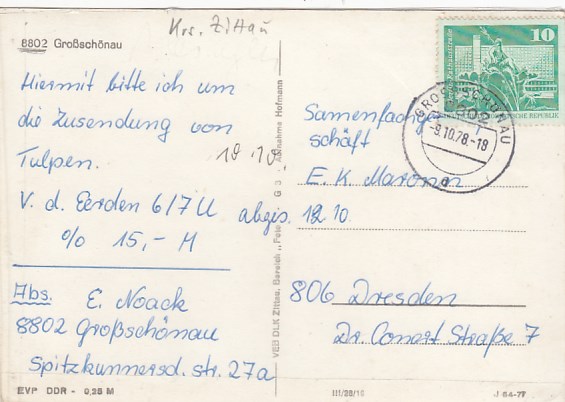 Krs. Zittau
8802 Großschönau
Hiermit bitte ich um
die Zusendung von
Tulpen.
V. d. Eerden 6/7 U
% 15,- M
Abs. E. Noack
8802 Großschönau
Spitzkunnersd. str. 27a
EVP DDR - 0,25 M
VEB DLK Zittau, Bereich „Foto
G 3 Aufnahme Hofmann
10
DEUTSCHE DEMOKRATISCHE REPUBLIK
GROSSSCHÖNAU
8802
-9.10.78.-18
a
Samenfachge
schäft
E. K. Maronn
abges. 12 10.
806 Dresden
Dr. Conert Straße 7
III/28/16
J 64-77